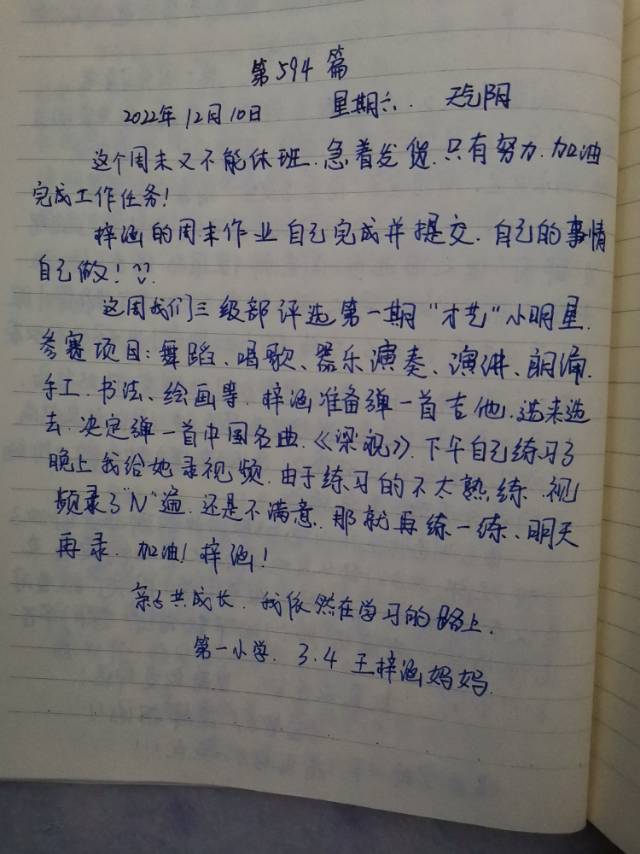 第594篇
2022年12月10日 星期六. 天气阴
这个周末又不能休班.急着发货.只有努力.加油
完成工作任务!
梓涵的周末作业自己完成并提交.自己的事情
自己做!
这周我们三级部评选第一期"才艺"小明星.
参赛项目:舞蹈、唱歌、器乐演奏、演讲、朗诵.
手工.书法、绘画等.梓涵准备弹一首吉他.选来选
去.决定弹一首中国名曲.《梁祝》.下午自己练习了
晚上我给她录视频.由于练习的不太熟练.视
频录了"N"遍.还是不满意.那就再练一练、明天
再录.加油!梓涵!
亲子共成长.我依然在学习的路上.
第一小学.3.4王梓涵妈妈.